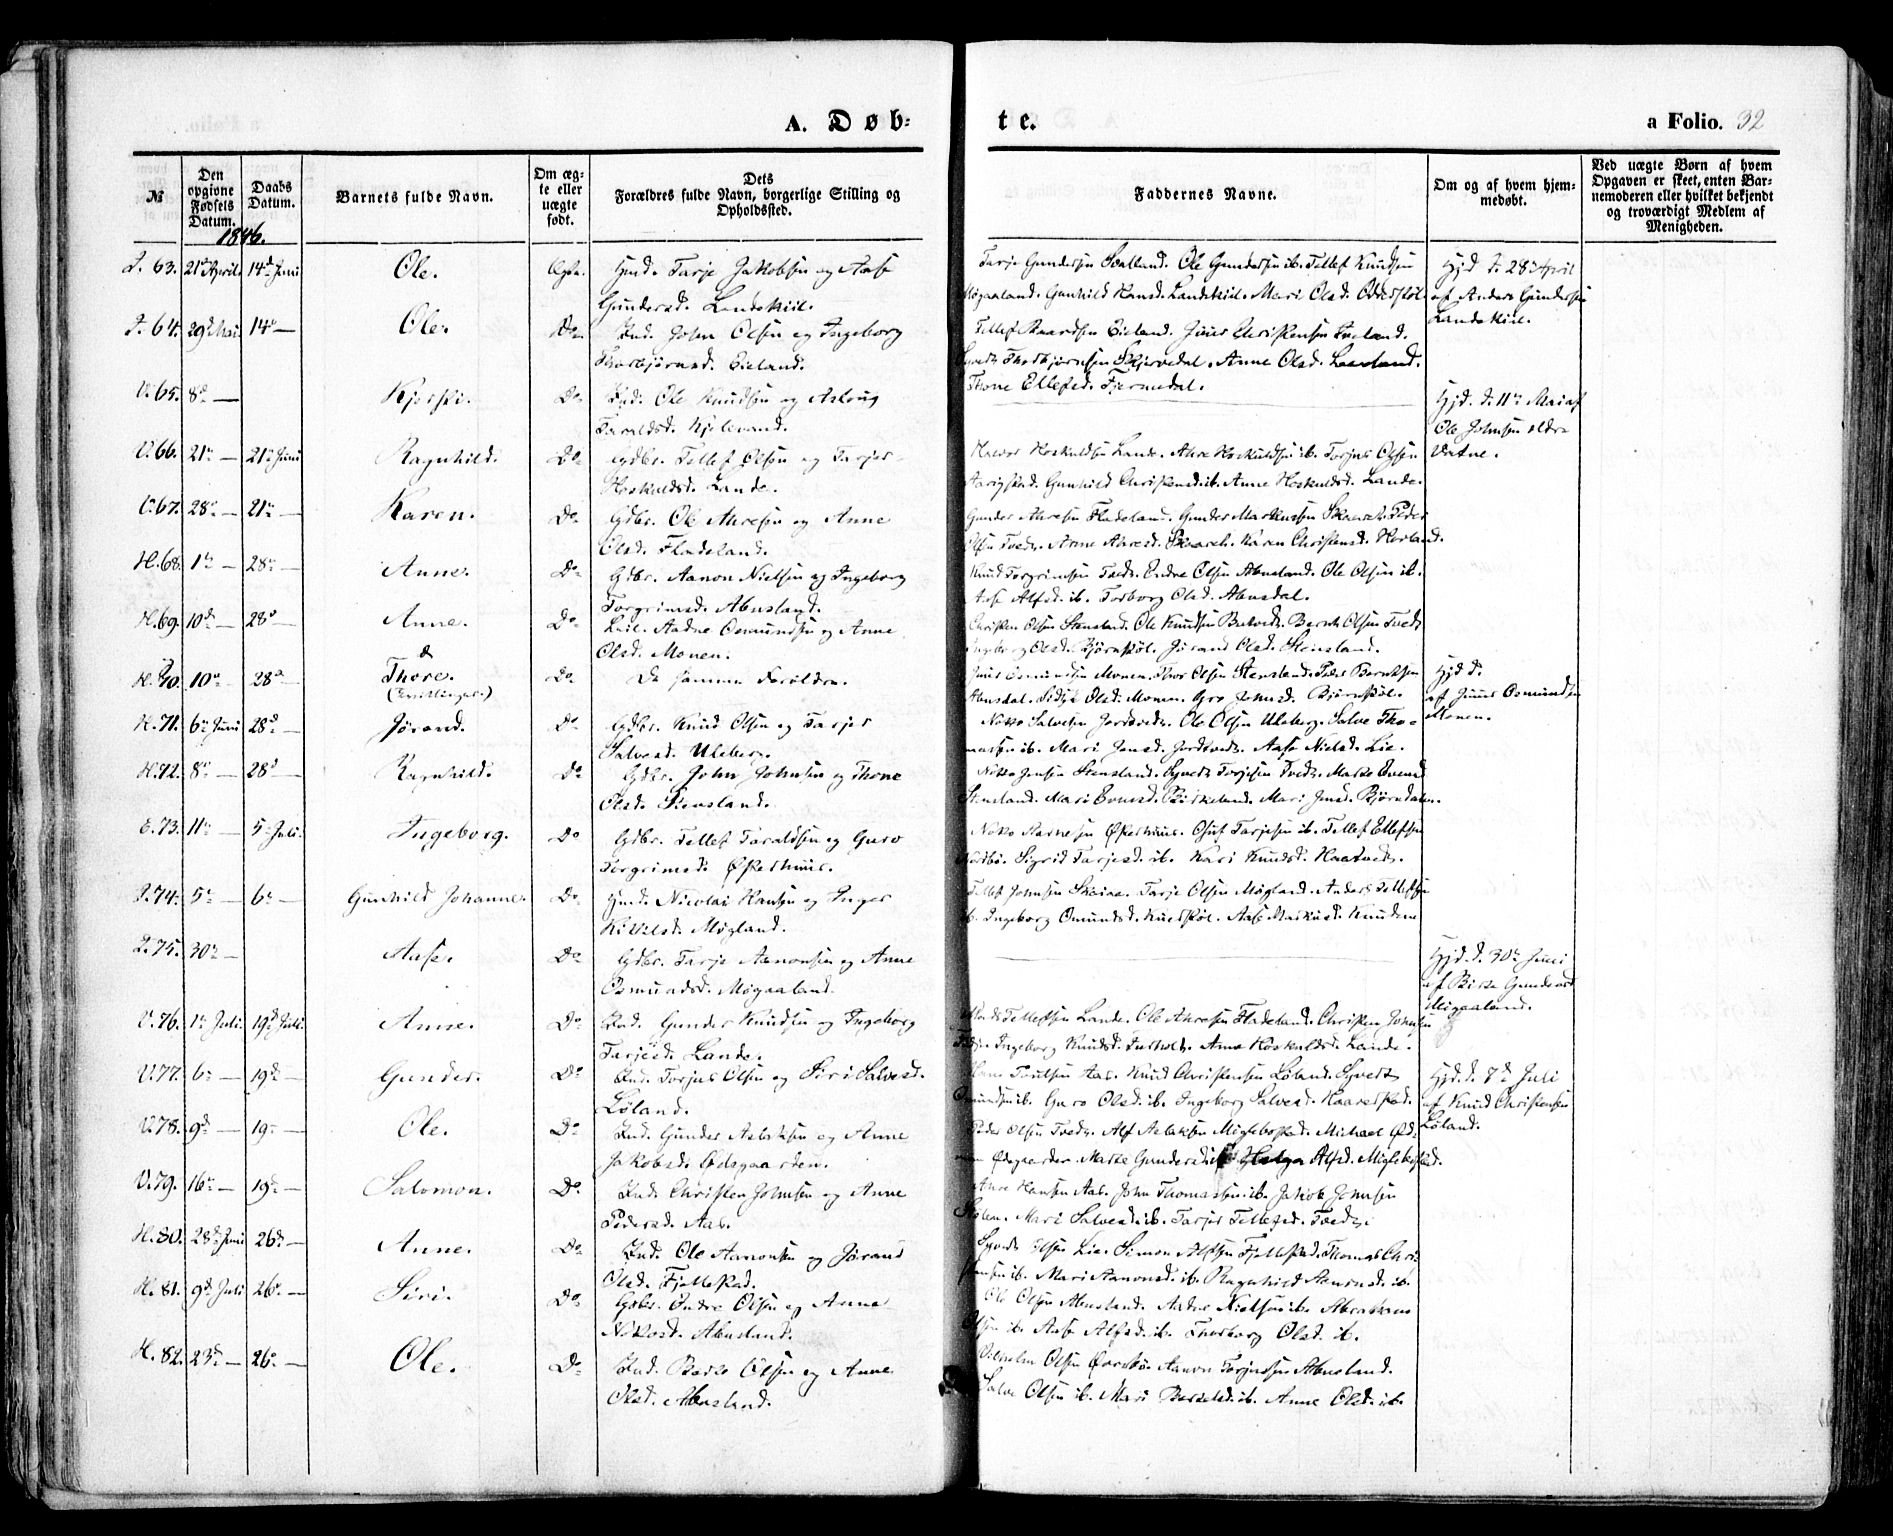 A. Døb-
te.
a Folio. 32
№
Den opgivne Fødsels Datum.
Daabs Datum.
Barnets fulde Navn.
Om ægte eller uægte født.
Dets Forældres fulde Navn, borgerlige Stilling og Opholdssted.
Faddernes Navne.
Om og af hvem hjemmedøbt.
Ved uægte Børn af hvem Opgaven er skeet, enten Barnemoderen eller hvilket bekjendt og troværdigt Medlem af Menigheden.
1846.
63. 21de April 14de Juni Ole. Egte. Tarje Jakobsen og Aase
Gundersd. Landskiil.
Tarje Gundersen Ole Gundersen ib. Tellef Knudsen
Gunhild Hansd. Landskiil. Mari Olsd.
Hjd. d. 28de April
af Anders Gundersen
Landskiil.
64. 29de Mai 14de — Ole. Do. Ind. John Olsen og Ingeborg
Thorbjørnsd. Eieland.
Eieland. Juus Christensen
Thorbjørnsen Anne Olsd.
Thone Ellefsd. Fjermedal.
V. 65. 8de — Kjersti. Do. Ind. Ole Knudsen og Aslaug
Taraldsd. Kjølevand.
Hjd. d. 11te Mai af
Ole Johnsen ældre
Vatne.
V. 66. 21de — 21de Juni Ragnhild. Do. Gdbr. Tellef Olsen og Tarjer
Hoskuldsd. Lande.
Halvor Hoskuldsen Lande. Ahre Hoskuldsen ib. Torjus Olsen
Gunhild Christensd. ib. Anne Hoskuldsd. Lande.
V. 67. 28de — 21de — Karen. Do. Gdbr. Ole Ahresen og Anne
Olsd. Fladeland.
Gunder Ahresen Fladeland. Gunder Markussen Skaareh. Peder
Olsen Tvedt. Anne Ahresd. Skaareh. Karen Christensd. Hovland.
H. 68. 1te — 28de — Anne. Do. Gdbr. Aanon Nielsen og Ingeborg
Torgrimsd. Abusland.
Knud Torgrimsen Tvedt. Endre Olsen Abusland. Ole Olsen ib.
Aase Alfsd. ib. Torborg Olsd. Abusdal.
H. 69. 10de — 28de — Anne. Do. Leil. Aadne Osmundsen og Anne
Olsd. Monen.
Christen Olsen Stensland. Ole Knudsen Bernt Olsen Tvedt
Ingeborg Olsd. Bjørnstøl. Jørand Olsd. Stensland.
H. 70. 10de — 28de — & Thore. (Tvillinger) Do. De samme Forældre.
Juus Osmundsen Monen. Thor Olsen Stensland. Peder Berntsen
Abusdal. Sidsel Olsd. Monen. Gro Jensd. Bjørnstøl.
Hjd. d.
af Juus Osmundsen
Monen.
H. 71. 6te Juni 28de — Jørand. Do. Gdbr. Knud Olsen og Tarjer
Salvesd. Uleberg.
Nokko Salvesen Ole Olsen Uleberg. Salve Tho-
massen ib. Mari Jensd. Aase Nielsd. Lie.
H. 72. 8de — 28de — Ragnhild. Do. Gdbr. John Johnsen og Thone
Olsd. Stensland.
Nokko Jensen Stensland. Syvert Torjesen Tvedt.
Stensland. Mari Birkeland. Mari Jensd. Bjørndalen.
E. 73. 11te — 5te Juli. Ingeborg. Do. Gdbr. Tellef Taraldsen og Guro
Torgrimsd. Økerhuus.
Nokko Aarnesen Økerhuus. Osuf Tarjesen ib. Tellef Ellefsen
Sigrid Tarjesd. ib. Kari Knudsd. Haatvedt.
74. 5te — 6te — Gunhild Johanne. Do. Nicolai Hansen og Inger
Mygland.
Tellef Johnsen Skaiaa. Tarje Olsen Mygland. Anders Tellefsen
ib. Ingeborg Omundsd. Aase Markusd.
75. 30te — Aase. Do. Gdbr. Tarje Aanonsen og Anne
Osmundsd. Møgaaland.
Hjd. d. 30te Juni
af Birte Gundersd.
Møgaaland.
V. 76. 1te Juli. 19de Juli. Anne. Do. Ind. Gunder Knudsen og Ingeborg
Tarjesd. Lande.
Tellefsen Lande. Ole Ahresen Fladeland. Christen Johnsen
Ingeborg Knudsd. Anne Hoskuldsd. Lande.
V. 77. 6te — 19de — Gunder. Do. Ind. Torjus Olsen og Siri Salvesd.
Løland.
Aas. Knud Christensen Løland. Syvert
Omundsen ib. Guro Olsd. ib. Ingeborg Salvesd.
Hjd. d. 7de Juli
af Knud Christensen
Løland.
V. 78. 9de — 19de — Ole. Do. Ind. Gunder Aslaksen og Anne
Jakobsd. Ødegaarden.
Peder Olsen Tvedt. Alf Aslaksen Myglebostad. Michael
Ødegaarden. Marte Gundersd. ib. Helga Alfsd. Myglebostad.
V. 79. 16de — 19de — Salomon. Do. Ind. Christen Johnsen og Anne
Pedersd. Aas.
Hansen Aas. John Thomassen ib. Jakob Johnsen
Mari Salvesd. ib. Tarjer Tellefsd. Tvedt.
H. 80. 28de Juni 26de — Anne. Do. Ind. Ole Aanonsen og Jørand
Olsd. Fjellestad.
Syvert Olsen Lie. Simon Alfsen Fjellestad. Thomas Chri-
stensen ib. Mari Aanonsd. ib. Ragnhild Aanonsd. ib.
H. 81. 9de Juli 26de — Siri. Do. Gdbr. Endre Olsen og Anne
Nokosd. Abusland.
Ole Olsen Abusland. Aadne Nielsen ib. Abraham
Olsen ib. Aase Alfsd. ib. Thorborg Olsd. ib.
H. 82. 23de — 26de — Ole. Do. Ind. Olsen og Anne
Olsd. Abusland.
Vilhelm Olsen Aanon Torjussen Abusland.
Salve Olsen ib. Mari ib. Anne Olsd. ib.